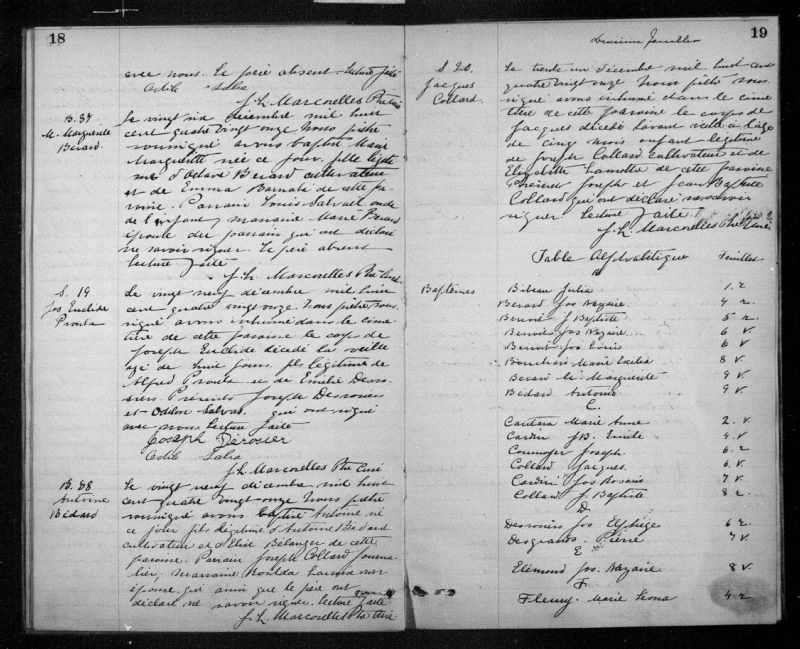 18
avec nous. Le père absent. Lecture faite
Odile Salva
J. H. Marcorelles Ptre Curé
B. 87
M. Marguerite
Bérard
Le vingt six décembre mil huit
cent quatre vingt onze Nous prêtre
soussigné avons baptisé Marie
Marguerite née ce jour, fille légiti
me d'Octave Bérard cultivateur
et de Emma Barnabé de cette pa
roisse. Parrain Louis Salvail oncle
de l'enfant, marraine Marie Bérard
épouse du parrain qui ont déclaré
ne savoir signer. Le père absent
Lecture faite
J. H. Marcorelles Ptre Curé
S. 19
Jos Euclide
Proulx
Le vingt neuf décembre mil huit
cent quatre vingt onze. Nous prêtre sous
signé avons inhumé dans le cime
tière de cette paroisse le corps de
Joseph Euclide décédé la veille
agé de huit jours, fils légitime de
Alfred Proulx et de Emilie Desro
siers. Présents Joseph Desrosiers
et Odilon Salvas qui ont signé
avec nous. Lecture faite
Joseph Derosier
Odile Salva
J. H. Marcorelles Ptre Curé
B. 88
Antoine
Bédard
Le vingt neuf décembre mil huit
cent quatre vingt onze Nous prêtre
soussigné avons baptisé Antoine né
ce jour fils légitime d'Antoine Bédard
cultivateur et d'Elise Bélanger de cette
paroisse. Parrain Joseph Collard journa
lier, marraine son
épouse qui ainsi que le père ont
déclaré ne savoir signer. Lecture faite
J. H. Marcorelles Ptre Curé
19
feuillet
S. 20.
Jacques
Collard.
Le trente un décembre mil huit cent
quatre vingt onze Nous prêtre sous
signé avons inhumé dans le cime
tière de cette paroisse le corps de
Jacques décédé l'avant veille à l'âge
de cinq mois enfant légitime
de Joseph Collard cultivateur et de
Elizabeth Lamotte de cette paroisse
Présents Joseph et Jean Baptiste
Collard qui ont déclaré ne savoir
signer Lecture faite.
J. H. Marcorelles Ptre Curé
Table Alphabétique Feuillet
B
Baptêmes Bibeau Julia 1. r
Bérard Jos Nazaire 4 r.
Benoit J Baptiste 5 r.
Benoit Jos Nazaire 6 v
Benoit Jos Louis 6 v
Bouchard Marie Exilia 8 v.
Bérard M. Marguerite 9 v.
Bédard Antoine 9 v.
C.
Cantara Marie Anne 2. v.
Cardin J.B. Emile 4. v.
Cournoyer Joseph. 6. r
Collard Jacques. 6. v.
Cardin Jos Rosario 7 v.
Collard J. Baptiste 8 r.
D
Desrosiers Jos Elphège 6 r.
Desgranges Pierre 7 v.
E
Elémond Jos. Nazaire 8 v.
F
Fleury Marie Leona 4 r